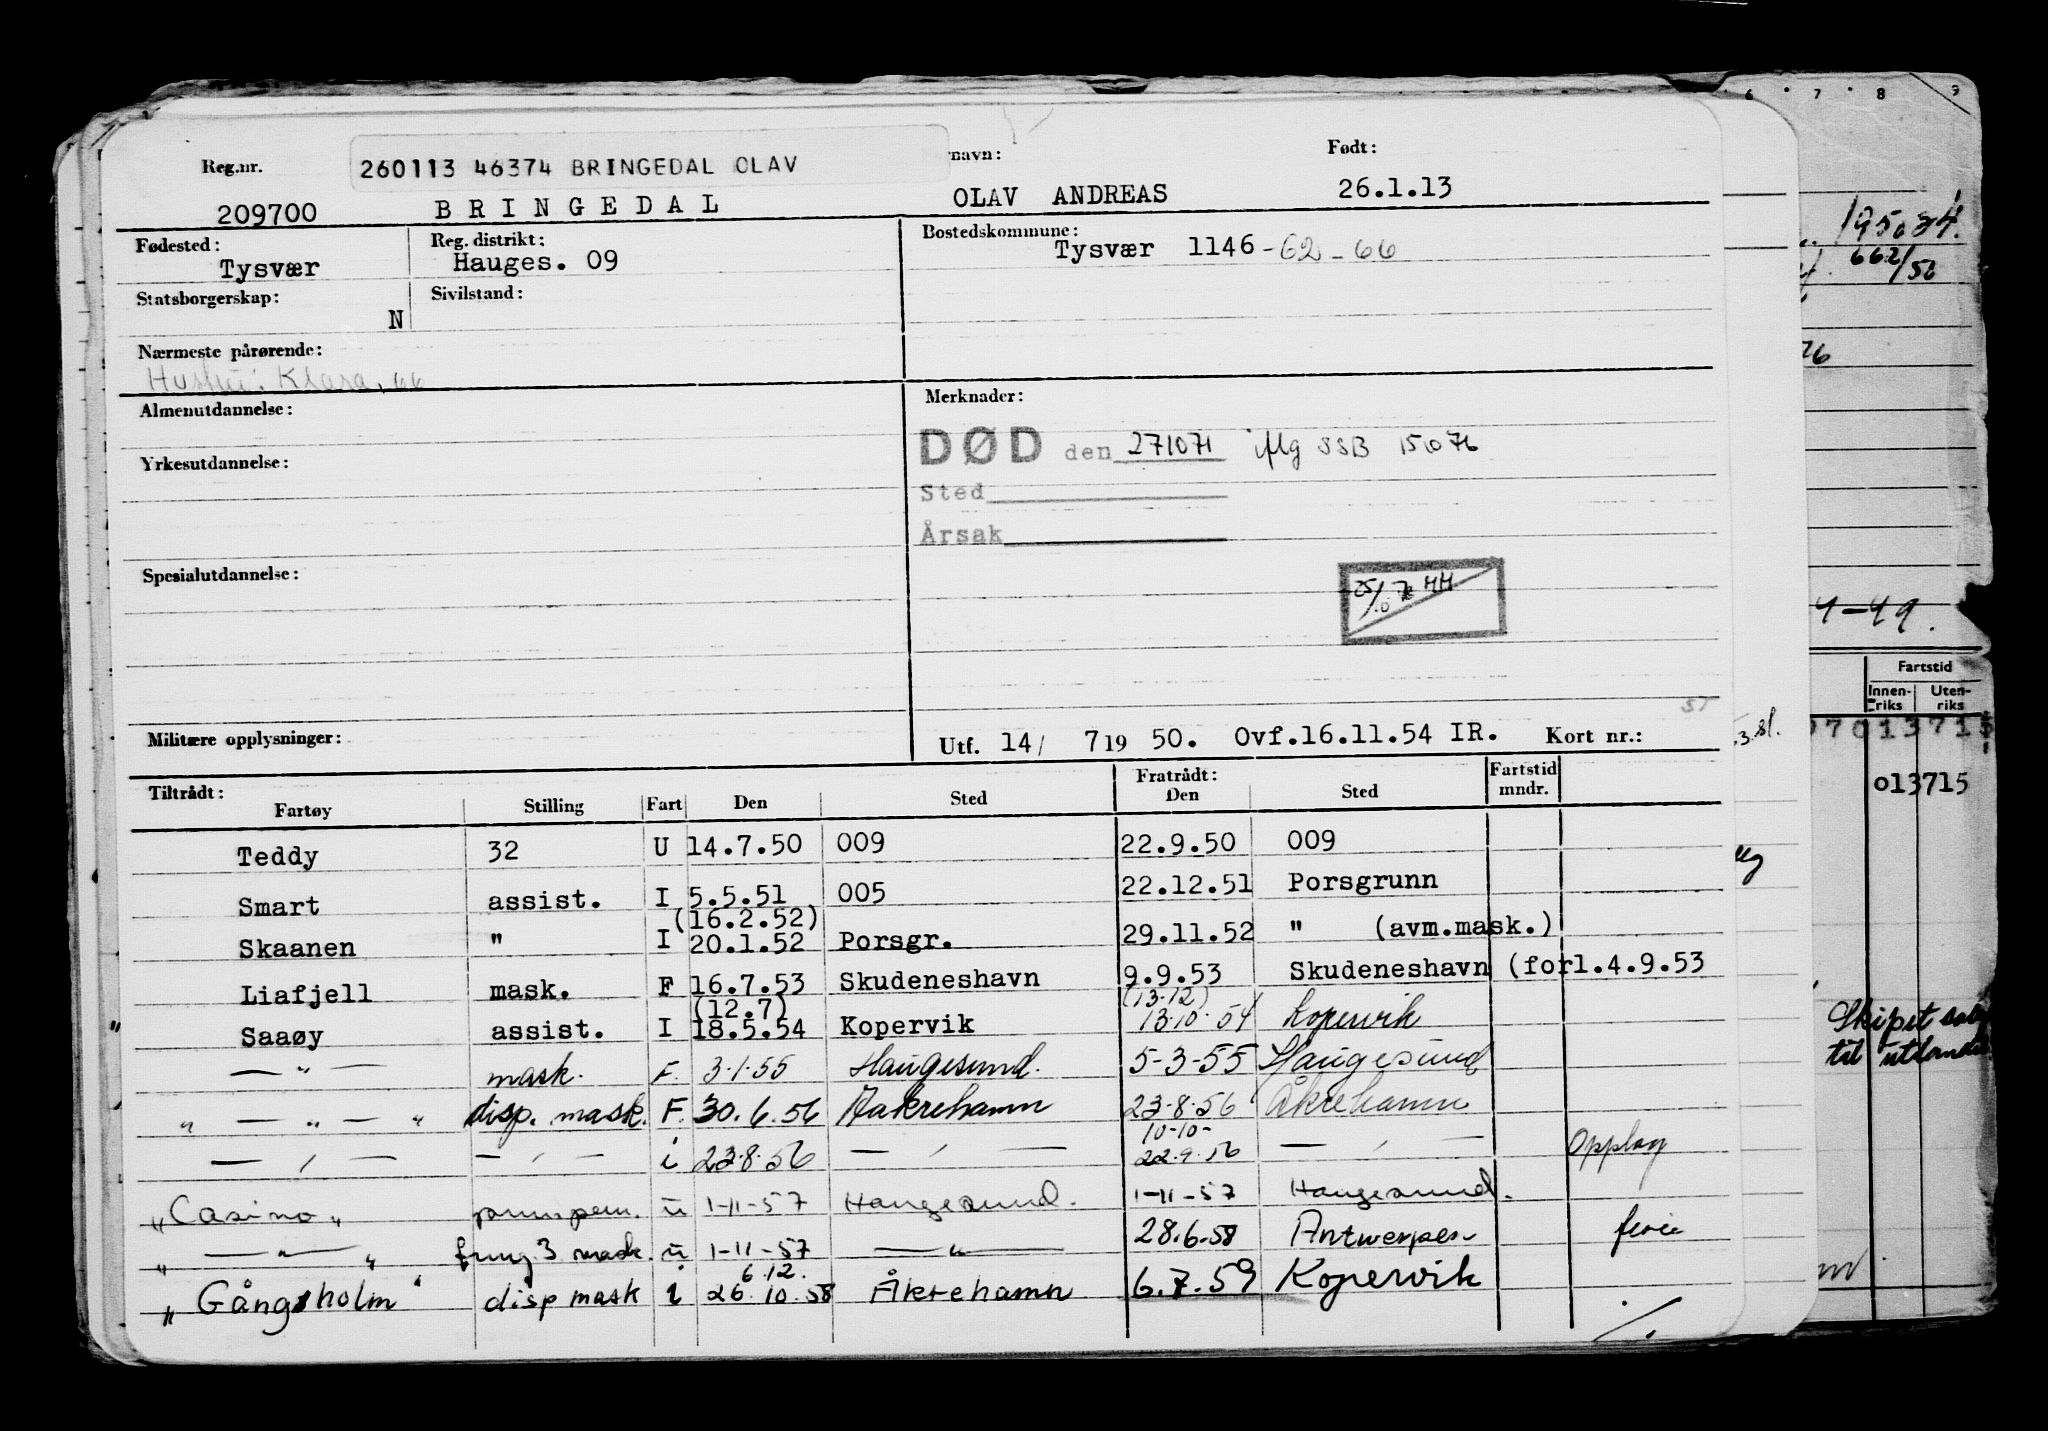 6 7 8 9
Reg.nr. 260113 46374 BRINGEDAL OLAV navn: Født:
209700 BRINGEDAL OLAV ANDREAS 26.1.13
Fødested: Reg. distrikt: Bostedskommune:
Tysvær Hauges. 09 Tysvær 1146-62-66
Statsborgerskap: Sivilstand:
N
Nærmeste pårørende:
Hustru: Klara, 66
Almenutdannelse: Merknader:
DØD den 271071 iflg SSB 151076
Yrkesutdannelse:
Sted
Årsak
Spesialutdannelse:
Militære opplysninger: Utf. 14/ 7 19 50. Ovf.16.11.54 IR. Kort nr.:
Tiltrådt: Fratrådt: Fartstid
Fartøy Stilling Fart Den Sted Den Sted mndr.
Teddy 32 U 14.7.50 009 22.9.50 009
Smart assist. I 5.5.51 005 22.12.51 Porsgrunn
(16.2.52)
Skaanen " I 20.1.52 Porsgr. 29.11.52 " (avm.mask.)
Liafjell mask. F 16.7.53 Skudeneshavn 9.9.53 Skudeneshavn (forl.4.9.53
(12.7) (13-12)
" Saaøy assist. I 18.5.54 Kopervik 13.10.54 Kopervik
— " — mask. F. 3.1.55 Haugesund. 5-3-55 Haugesund
" — " — " disp. mask. F. 30.6.56 Aakrehamn 23.8.56 Åkrehamn
10-10-
— " — — " — i 23.8.56 — " — 22.9.56 — " — Opplag
"Casino" pumpem. u 1-11-57 Haugesund. 1-11-57 Haugesund.
" — " — " fung. 3 mask. u 1-11-57 — " — 28.6.58 Antwerpen ferie
6.12.
"Gångsholm" disp mask i 26.10.58 Åkrehamn 6.7.59 Kopervik
./.
662/56
4-49.
Fartstid
Innenriks Utenriks
013715
Skipet
til